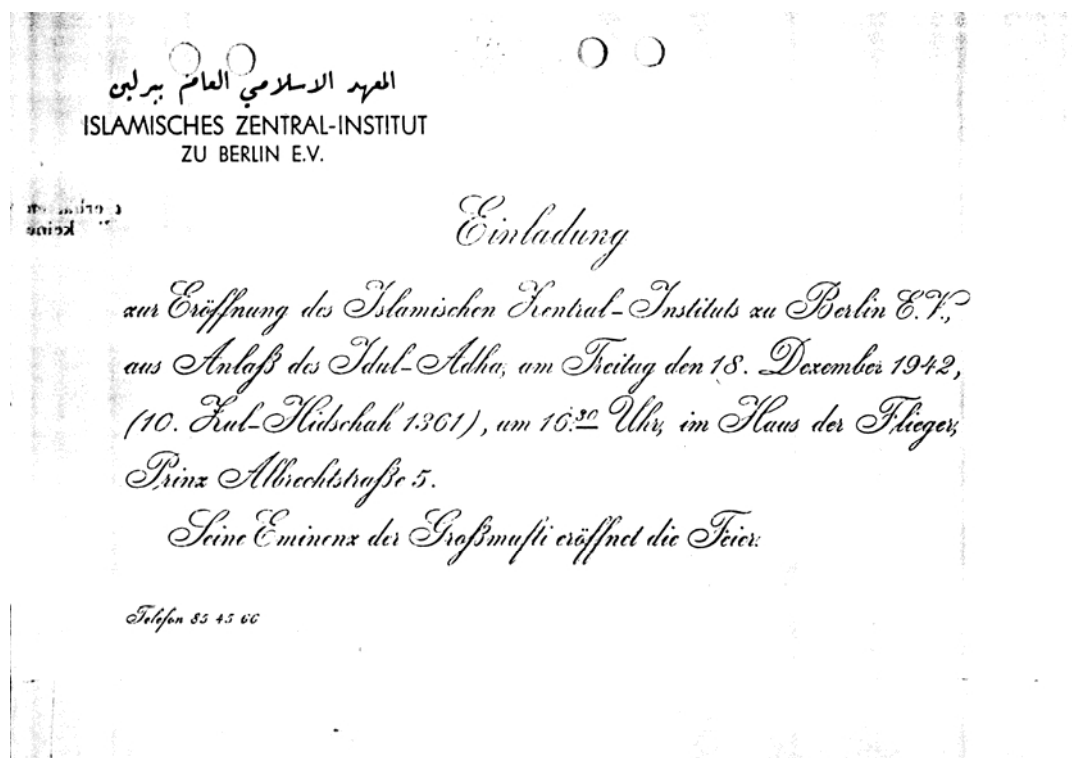 المعهد الاسلامي العام ببرلين
ISLAMISCHES ZENTRAL-INSTITUT
ZU BERLIN E.V.
keine
Einladung
zur Eröffnung des Islamischen Zentral-Instituts zu Berlin E.V.,
aus Anlaß des Idul-Adha, am Freitag den 18. Dezember 1942,
(10. Zul-Hidschah 1361), um 16:30 Uhr, im Haus der Flieger,
Prinz Albrechtstraße 5.
Seine Eminenz der Großmufti eröffnet die Feier.
Telefon 85 45 66